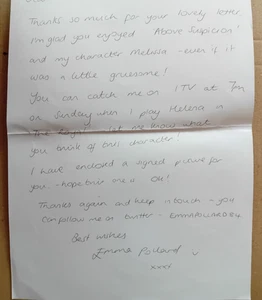 Thanks so much for your lovely letter.
I'm glad you enjoyed Above Suspicion!
and my character Melissa - even if it
was a little gruesome!
You can catch me on ITV at 7pm
on Sunday when I play Helena in
The let me know what
you think of this character!
I have enclosed a signed picture for
you - hope this one is OK!
Thanks again and keep in touch - you
can follow me on twitter -
Best wishes
Emma Pollard
xxxx